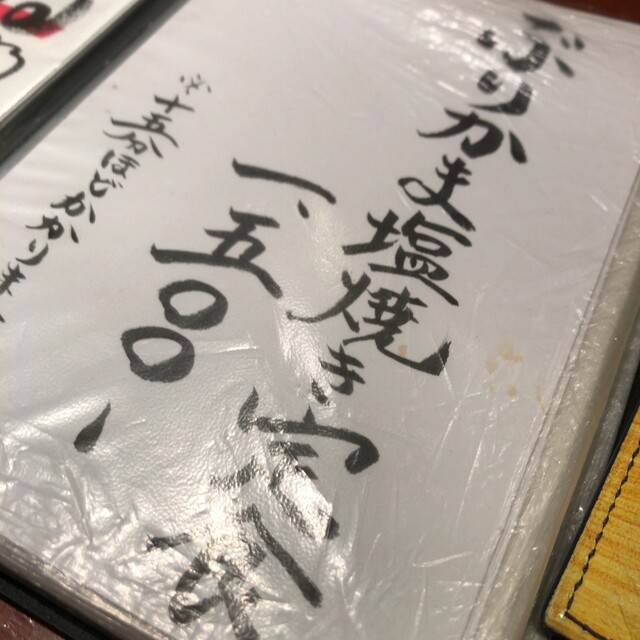 ぶりかま塩焼き定食
一、五〇〇、
※十五分ほどかかりま